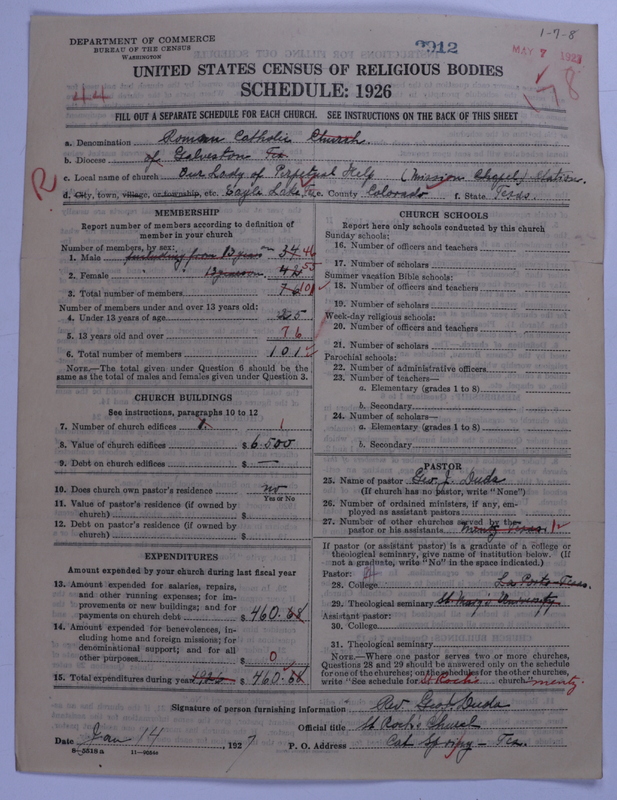 1-7-8
DEPARTMENT OF COMMERCE
BUREAU OF THE CENSUS
WASHINGTON
2912
MAY 7 1928
178
UNITED STATES CENSUS OF RELIGIOUS BODIES
44
SCHEDULE: 1926
FILL OUT A SEPARATE SCHEDULE FOR EACH CHURCH. SEE INSTRUCTIONS ON THE BACK OF THIS SHEET
a. Denomination Roman Catholic Church.
b. Diocese of Galveston Tex
c. Local name of church Our Lady of Perpetual Help (Mission Chapel) Station.
R
d. City, town, village, or township, etc. Eagle Lake, Tex e. County Colorado f. State Texas.
MEMBERSHIP
Report number of members according to definition of member in your church
Number of members, by sex:
1. Male including from 13 years 34 46
2. Female 13 years on 42 55
3. Total number of members 76 101
Number of members under and over 13 years old:
4. Under 13 years of age 25
5. 13 years old and over 76
6. Total number of members 101
NOTE.—The total given under Question 6 should be the same as the total of males and females given under Question 3.
CHURCH BUILDINGS
See instructions, paragraphs 10 to 12
7. Number of church edifices 1. 1
8. Value of church edifices $ 6500
9. Debt on church edifices $ —
10. Does church own pastor's residence no
Yes or No
11. Value of pastor's residence (if owned by church) $
12. Debt on pastor's residence (if owned by church) $
EXPENDITURES
Amount expended by your church during last fiscal year
13. Amount expended for salaries, repairs, and other running expenses; for improvements or new buildings; and for payments on church debt $ 460.68
14. Amount expended for benevolences, including home and foreign missions; for denominational support; and for all other purposes. $ 0
15. Total expenditures during year 1926 $ 460.68
CHURCH SCHOOLS
Report here only schools conducted by this church
Sunday schools:
16. Number of officers and teachers
17. Number of scholars
Summer vacation Bible schools:
18. Number of officers and teachers
19. Number of scholars
Week-day religious schools:
20. Number of officers and teachers
21. Number of scholars
Parochial schools:
22. Number of administrative officers
23. Number of teachers—
a. Elementary (grades 1 to 8)
b. Secondary
24. Number of scholars—
a. Elementary (grades 1 to 8)
b. Secondary
PASTOR
25. Name of pastor Geo. J. Duda
(If church has no pastor, write "None")
26. Number of ordained ministers, if any, employed as assistant pastors
27. Number of other churches served by the pastor or his assistants Mentz Texas 1
If pastor (or assistant pastor) is a graduate of a college or theological seminary, give name of institution below. (If not a graduate, write "No" in the space indicated.)
Pastor:
28. College La Porte-Texas.
29. Theological seminary St Mary's University
Assistant pastor:
30. College
31. Theological seminary
NOTE.—Where one pastor serves two or more churches, Questions 28 and 29 should be answered only on the schedule for one of the churches; on the schedules for the other churches, write "See schedule for St Rochs church." mentz
Signature of person furnishing information Rev. Geo J. Duda
Official title St Roch's Church
Date Jan 14, 1927
P. O. Address Cat Spring - Tex.
8—5518a 11—9588